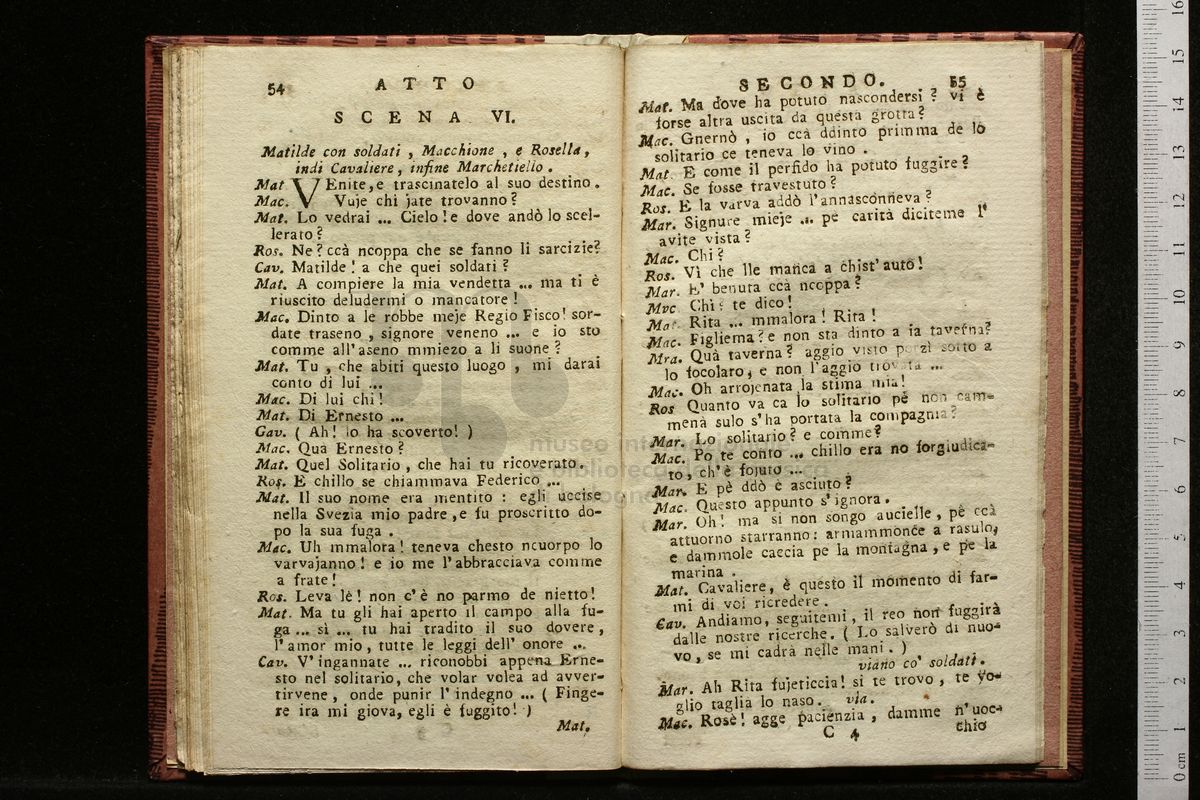 54
A T T O
S C E N A VI.
Matilde con soldati , Macchione , e Rosella,
indi Cavaliere, infine Marchetiello .
Mat VEnite,e trascinatelo al suo destino.
Mac. Vuje chi jate trovanno?
Mat. Lo vedrai ... Cielo! e dove andò lo scel-
lerato?
Ros. Ne? ccà ncoppa che se fanno li sarcizie?
Cav. Matilde! a che quei soldati?
Mat. A compiere la mia vendetta ... ma ti è
riuscito deludermi o mancatore!
Mac. Dinto a le robbe meje Regio Fisco! sor-
date traseno , signore veneno ... e io sto
comme all'aseno mmiezo a li suone?
Mat. Tu , che abiti questo luogo , mi darai
conto di lui ...
Mac. Di lui chi!
Mat. Di Ernesto ...
Cav. ( Ah! lo ha scoverto! )
Mac. Qua Ernesto?
Mat. Quel Solitario , che hai tu ricoverato.
Ros. E chillo se chiammava Federico ...
Mat. Il suo nome era mentito : egli uccise
nella Svezia mio padre,e fu proscritto do-
po la sua fuga .
Mac. Uh mmalora! teneva chesto ncuorpo lo
varvajanno! e io me l'abbracciava comme
a frate!
Ros. Leva lè! non c'è no parmo de nietto!
Mat. Ma tu gli hai aperto il campo alla fu-
ga ... sì ... tu hai tradito il suo dovere,
l'amor mio, tutte le leggi dell' onore ...
Cav. V'ingannate ... riconobbi appena Erne-
sto nel solitario, che volar volea ad avver-
tirvene, onde punir l' indegno ... ( Finge-
re ira mi giova, egli è fuggito! )
Mat.
S E C O N D O.
55
Mat. Ma dove ha potuto nascondersi? vi è
forse altra uscita da questa grotta?
Mac. Gnernò , io ccà ddinto primma de lo
solitario ce teneva lo vino .
Mat. E come il perfido ha potuto fuggire?
Mac. Se fosse travestuto?
Ros. E la varva addò l'annasconneva?
Mar. Signure mieje ... pe carità diciteme l'
avite vista?
Mac. Chi?
Ros. Vì che lle manca a chist'auto!
Mar. E' benuta ccà ncoppa?
Mvc Chi? te dico!
Mar. Rita ... mmalora! Rita!
Mac. Figliema? e non sta dinto a la taverna?
Mra. Quà taverna? aggio visto perzì sotto a
lo focolaro, e non l'aggio trovata ...
Mac. Oh arrojenata la stima mia!
Ros Quanto va ca lo solitario pè non cam-
menà sulo s'ha portata la compagnia?
Mar. Lo solitario? e comme?
Mac. Po te conto ... chillo era no forgiudica-
to, ch'è fojuto ...
Mar. E pè ddò è asciuto?
Mac. Questo appunto s'ignora.
Mar. Oh! ma si non songo aucielle, pè ccà
attuorno starranno: armammonce a rasulo,
e dammole caccia pe la montagna, e pe la
marina .
Mat. Cavaliere, è questo il momento di far-
mi di voi ricredere.
Cav. Andiamo, seguitemi, il reo non fuggirà
dalle nostre ricerche. ( Lo salverò di nuo-
vo, se mi cadrà nelle mani. )
viano co' soldati.
Mar. Ah Rita fujeticcia! si te trovo, te vo-
glio taglia lo naso. via.
Mac. Rosè! agge pacienzia, damme n'uoc-
C 4 chio
museo
biblioteca della musica
di bologna